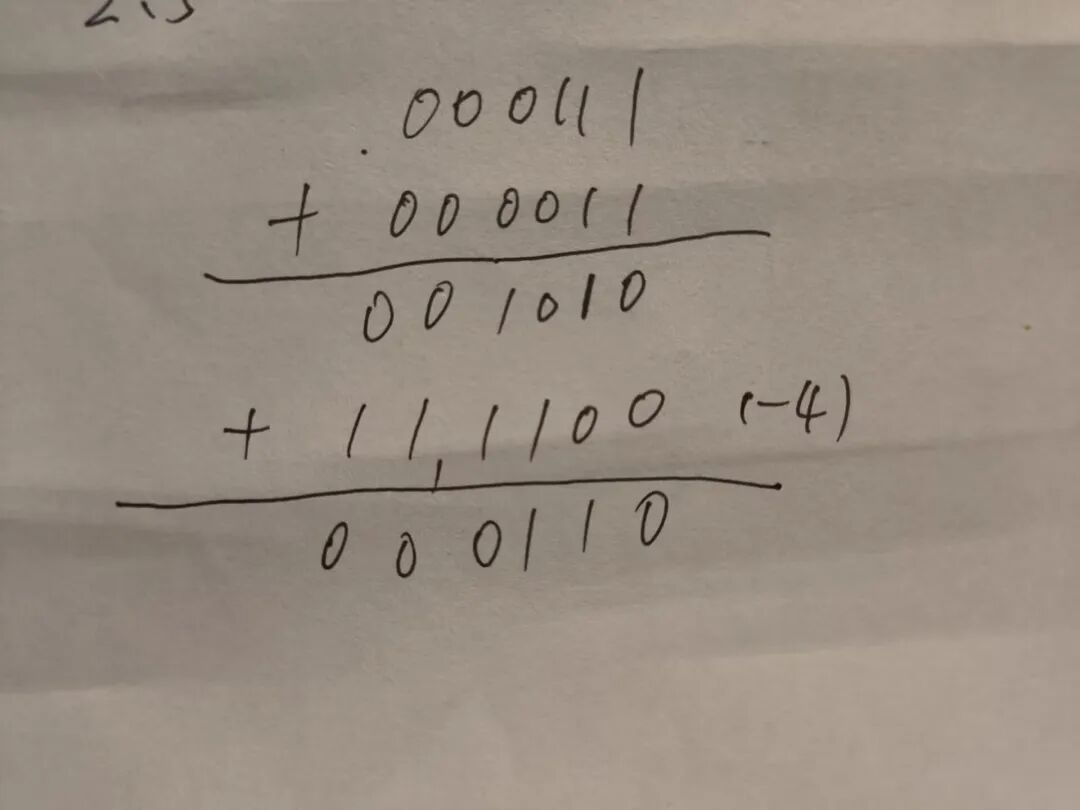 000111
+ 000011
001010
+ 11,1100 (-4)
000110